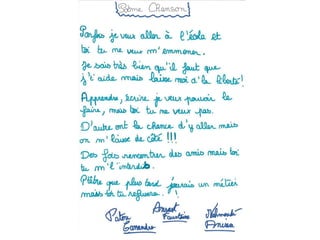 Poème Chanson
Parfois je veux aller à l'école et
toi tu ne veux m'emmener.
Je sais très bien qu'il faut que
j't'aide mais laisse moi d'la liberté!
Apprendre, écrire je veux pouvoir le
faire, mais toi tu ne veux pas.
D'autre ont la chance d'y aller mais
on m'laisse de côté !!!
Des fois rencontrer des amis mais toi
tu m'l'interdis.
Ptêtre que plus tard j'aurais un métier
mais toi tu refuseras !
Faustine
Anissa